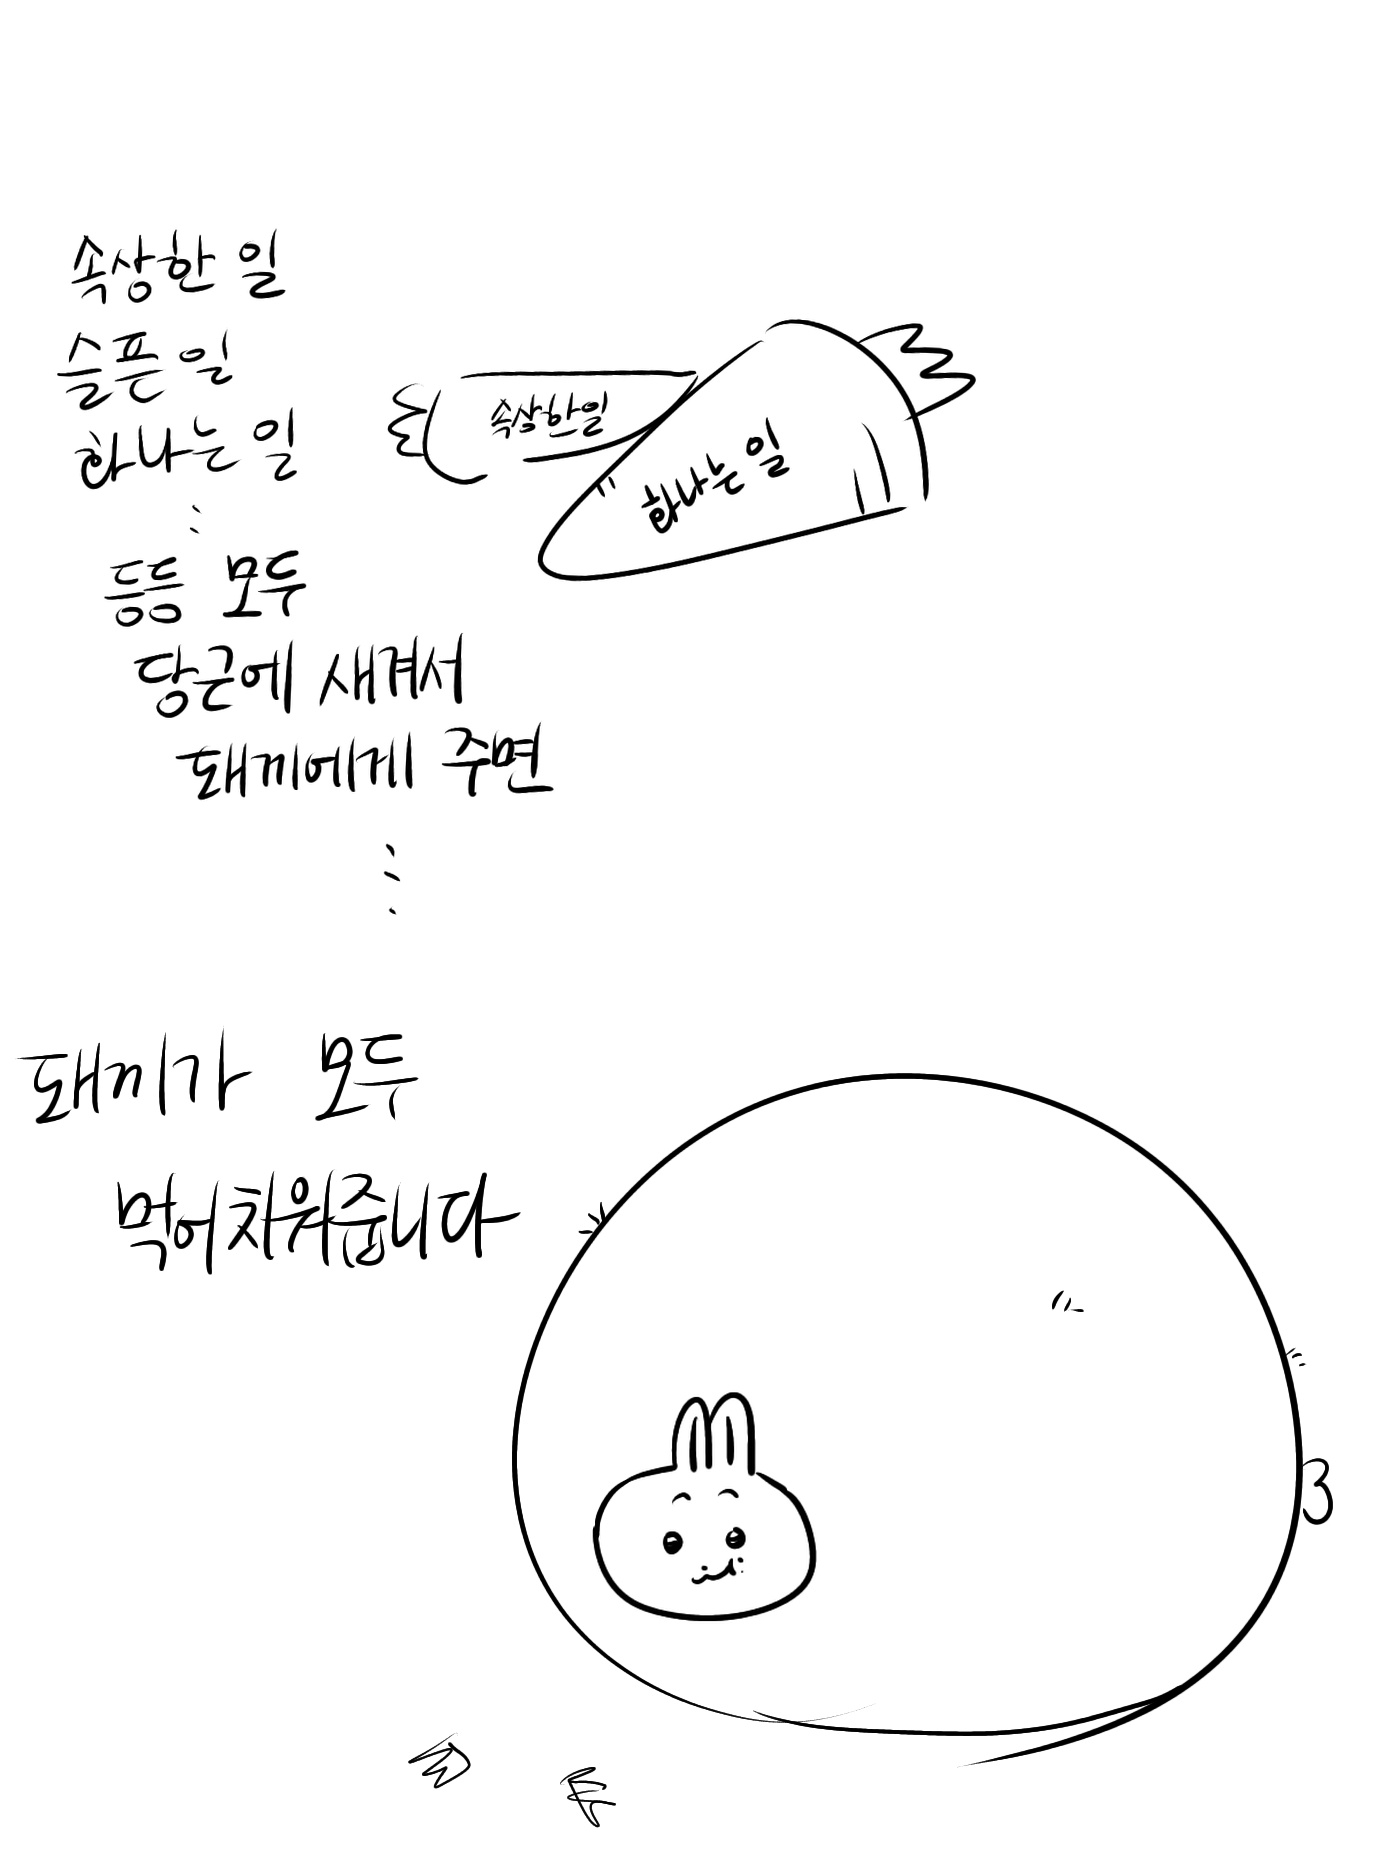 속상한 일
슬픈 일
하나는 일
⋮
등등 모두
당근에 새겨서
돼끼에게 주면
⋮
속상한일
화나는 일
돼끼가 모두
먹어치워줍니다